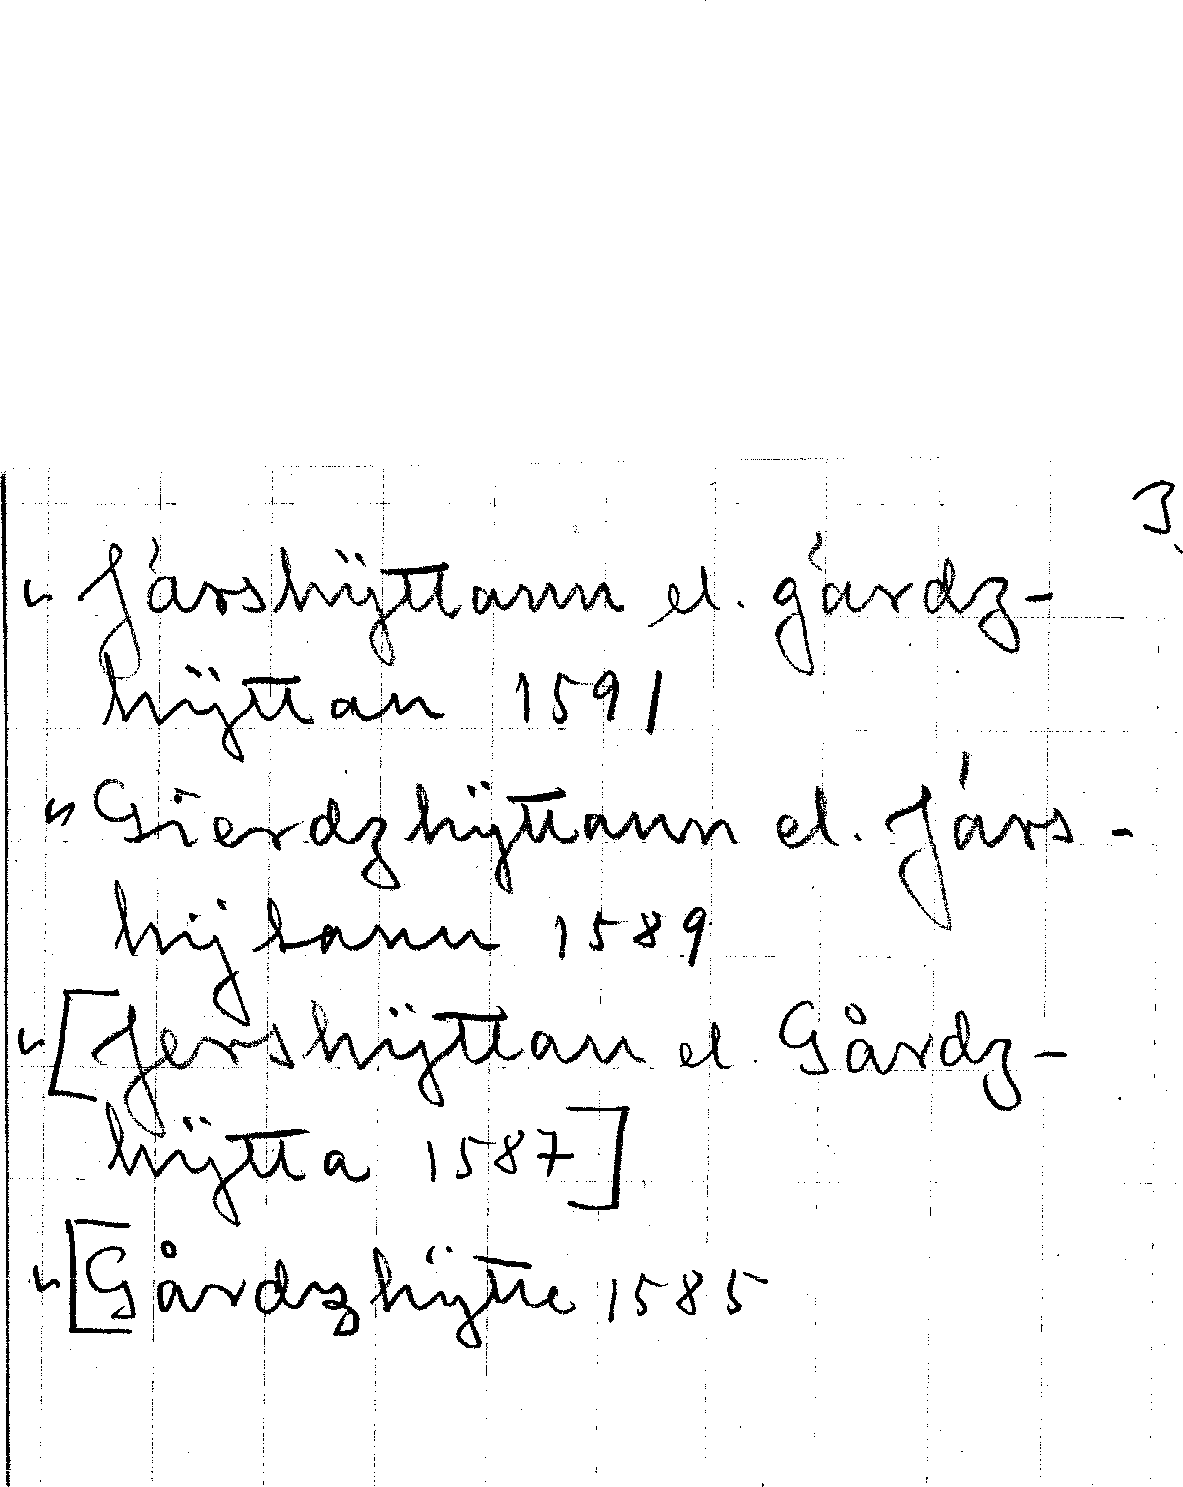 3.
" Járshÿttann el. gárdz-
hÿttan 1591
" Gierdzhÿttann el. Járs-
hijtann 1589
" [Jershÿttan el. Gårdz-
hÿtta 1587]
" [Gårdzhÿtte 1585